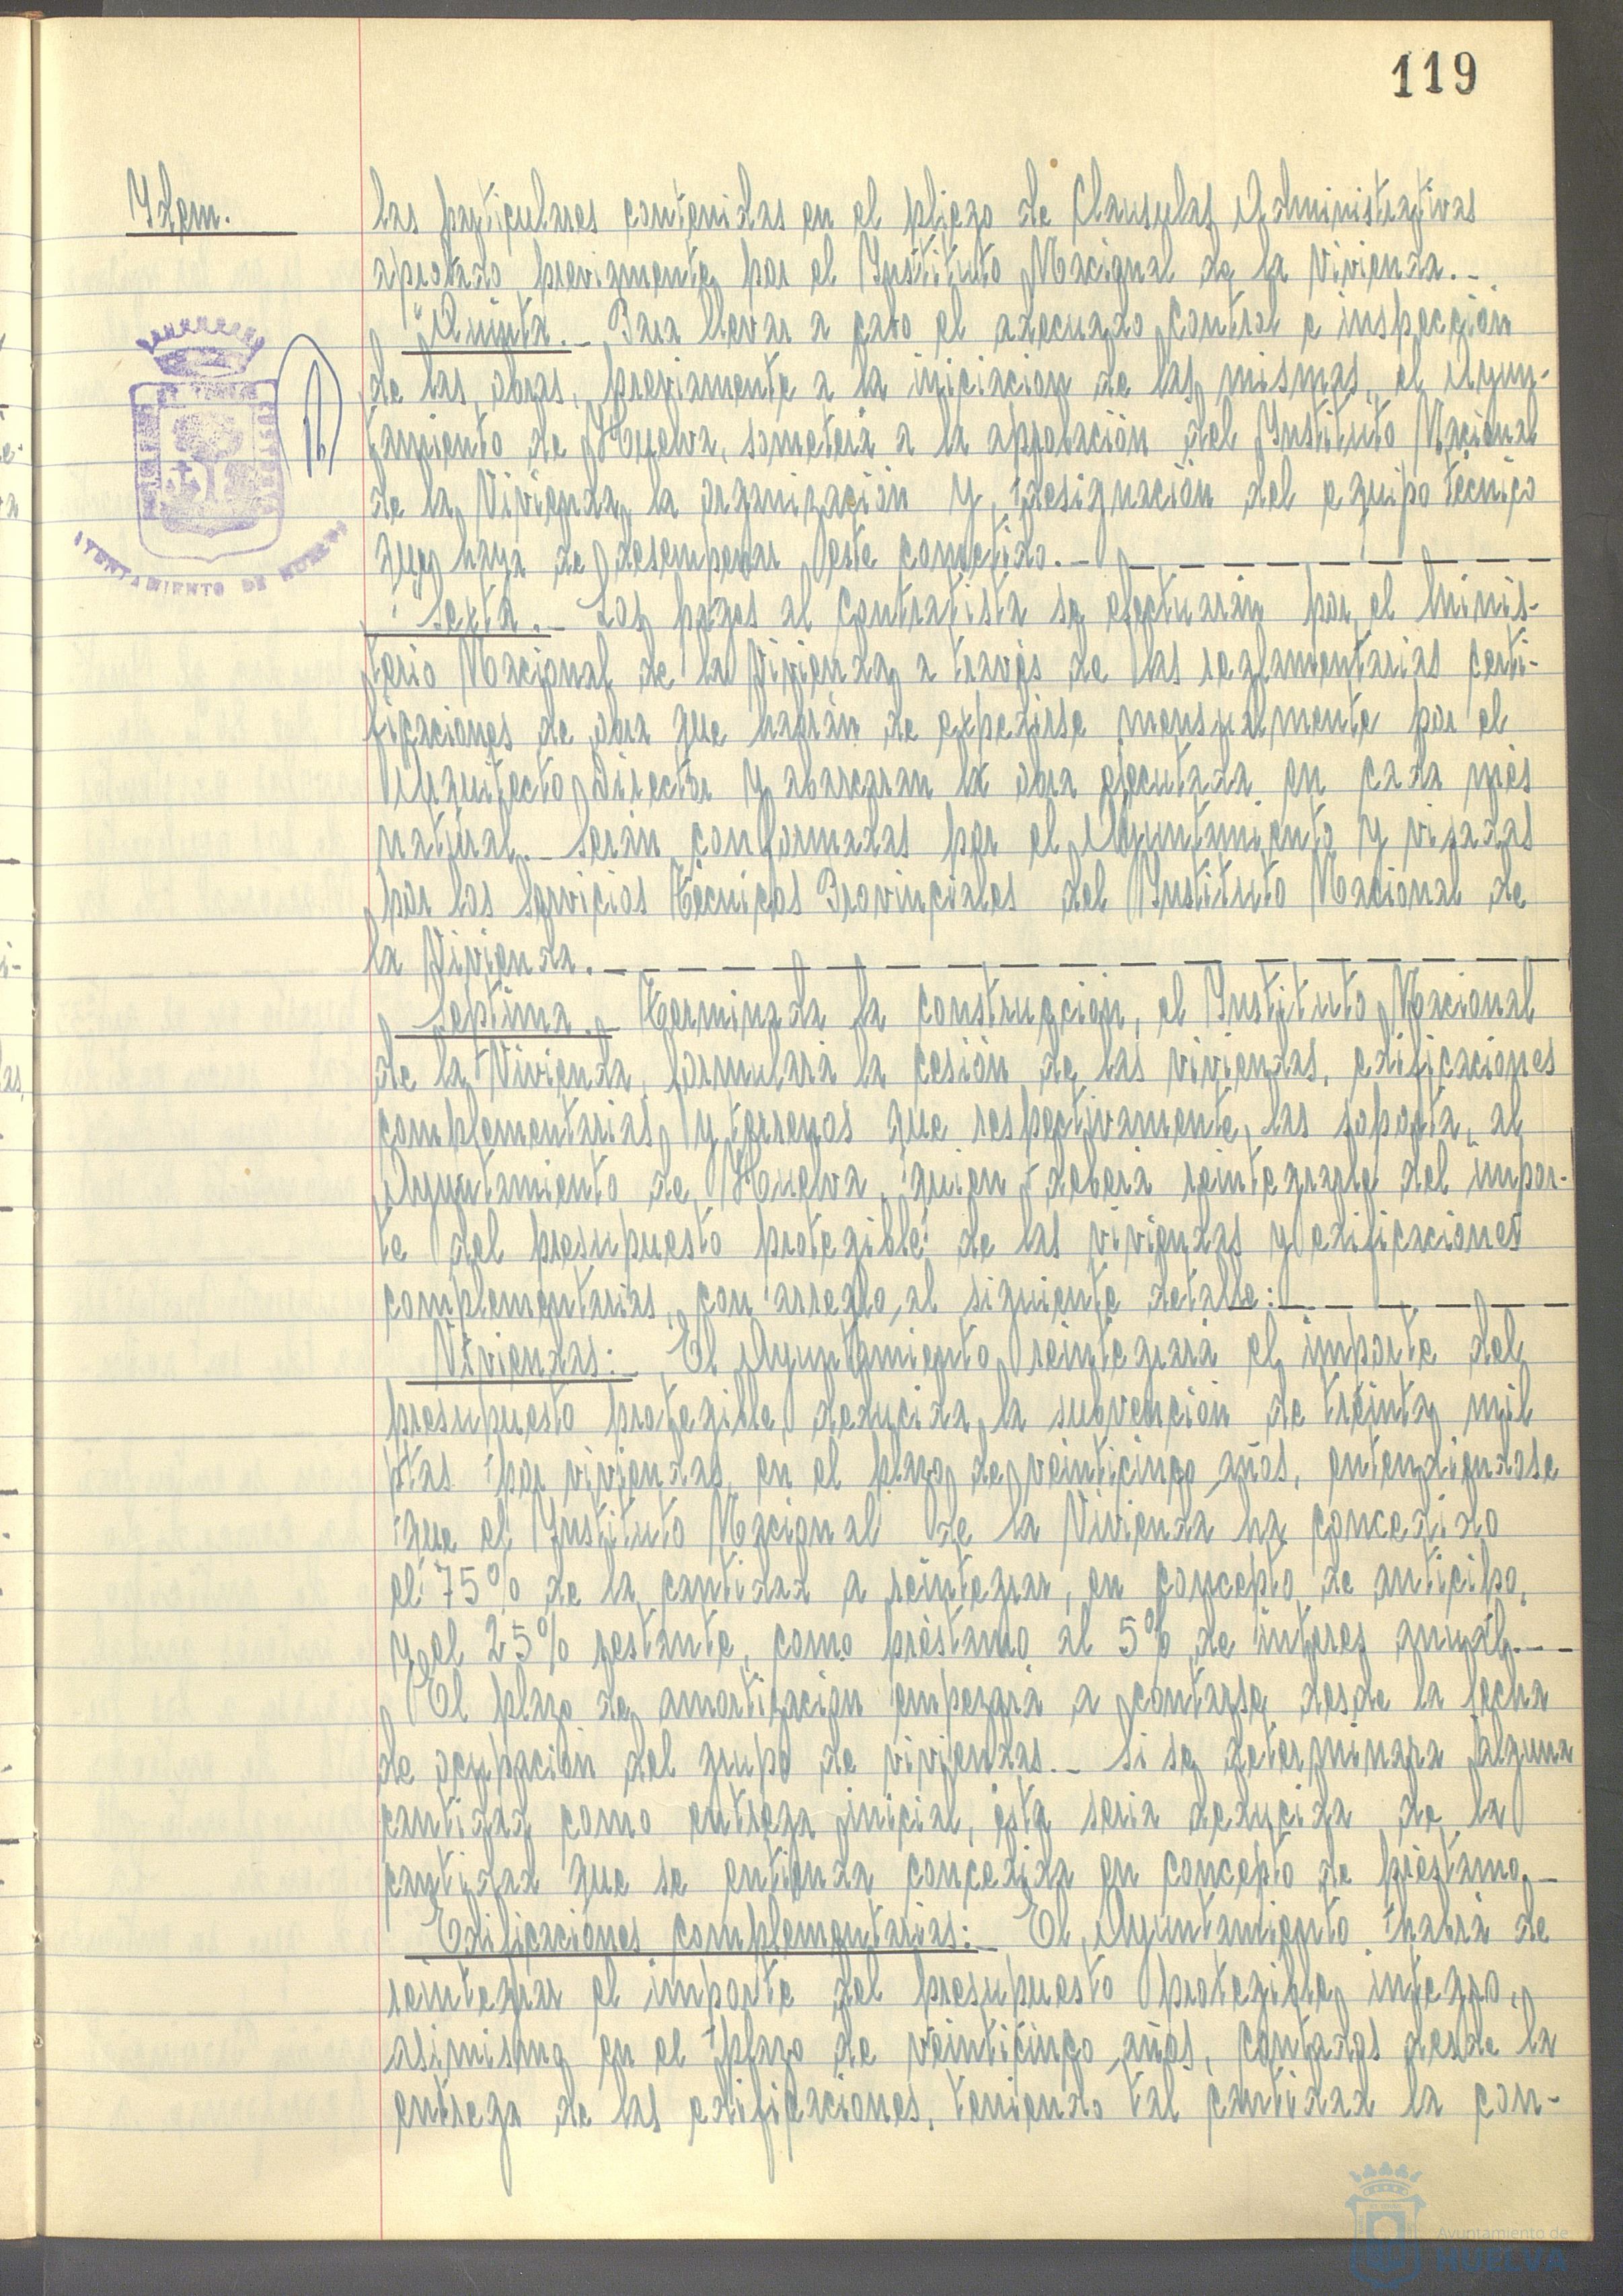 119
Ydem.
las particulares contenidas en el pliego de Clausulas Administrativas
aprobado previamente por el Ynstituto Nacional de la Vivienda.-
"Quinta.- Para llevar a cabo el adecuado control e inspección
de las obras, previamente a la iniciacion de las mismas, el Ayun-
tamiento de Huelva, someterá a la aprobación del Ynstituto Nacional
de la Vivienda la organización y designación del equipo técnico
que haya de desempeñar este cometido.-
Sexta.- Los pagos al contratista se efectuarán por el Minis-
terio Nacional de la Vivienda a través de las reglamentarias certi-
ficaciones de obra que habrán de expedirse mensualmente por el
Arquitecto Director y abarcaran la obra ejecutada en cada mes
natural.- Serán conformadas por el Ayuntamiento y visadas
por los Servicios Técnicos Provinciales del Ynstituto Nacional de
la Vivienda.-
Septima.- Terminada la construccion, el Ynstituto Nacional
de la Vivienda, formulará la cesión de las viviendas, edificaciones
complementarias y terrenos que respectivamente, las soporta, al
Ayuntamiento de Huelva, quien deberá reintegrarle del impor-
te del presupuesto protegible de las viviendas y edificaciones
complementarias, con arreglo al siguiente detalle:-
Viviendas:- El Ayuntamiento reintegrará el importe del
presupuesto protegible, deducida la subvención de treinta mil
ptas por viviendas, en el plazo de veinticinco años, entendiendose
que el Ynstituto Nacional de la Vivienda ha concedido
el 75% de la cantidad a reintegrar, en concepto de anticipo,
y el 25% restante, como préstamo al 5% de interes anual.-
El plazo de amortización empezará a contarse desde la fecha
de ocupación del grupo de viviendas.- Si se determinara alguna
cantidad como entrega inicial, ésta seria deducida de la
cantidad que se entienda concedida en concepto de préstamo.-
Edificaciones complementarias:- El Ayuntamiento habrá de
reintegrar el importe del presupuesto protegible integro,
asimismo en el plazo de veinticinco años, contados desde la
entrega de las edificaciones, teniendo tal cantidad la con-
AYUNTAMIENTO DE HUELVA
Ayuntamiento de
HUELVA